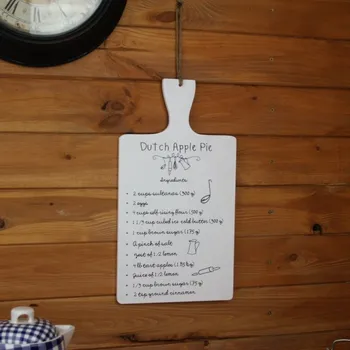 Dutch Apple Pie
Ingredients
• 2 cups sultanas (300 g)
• 2 eggs
• 4 cups self-rising flour (500 g)
• 1 1/3 cup cubed ice cold butter (300 g)
• 1 cup brown sugar (175 g)
• A pinch of salt
• Zest of 1/2 lemon
• 4 lb tart apples (1.75 kg)
• Juice of 1/2 lemon
• 1/3 cup brown sugar (75 g)
• 2 tsp ground cinnamon